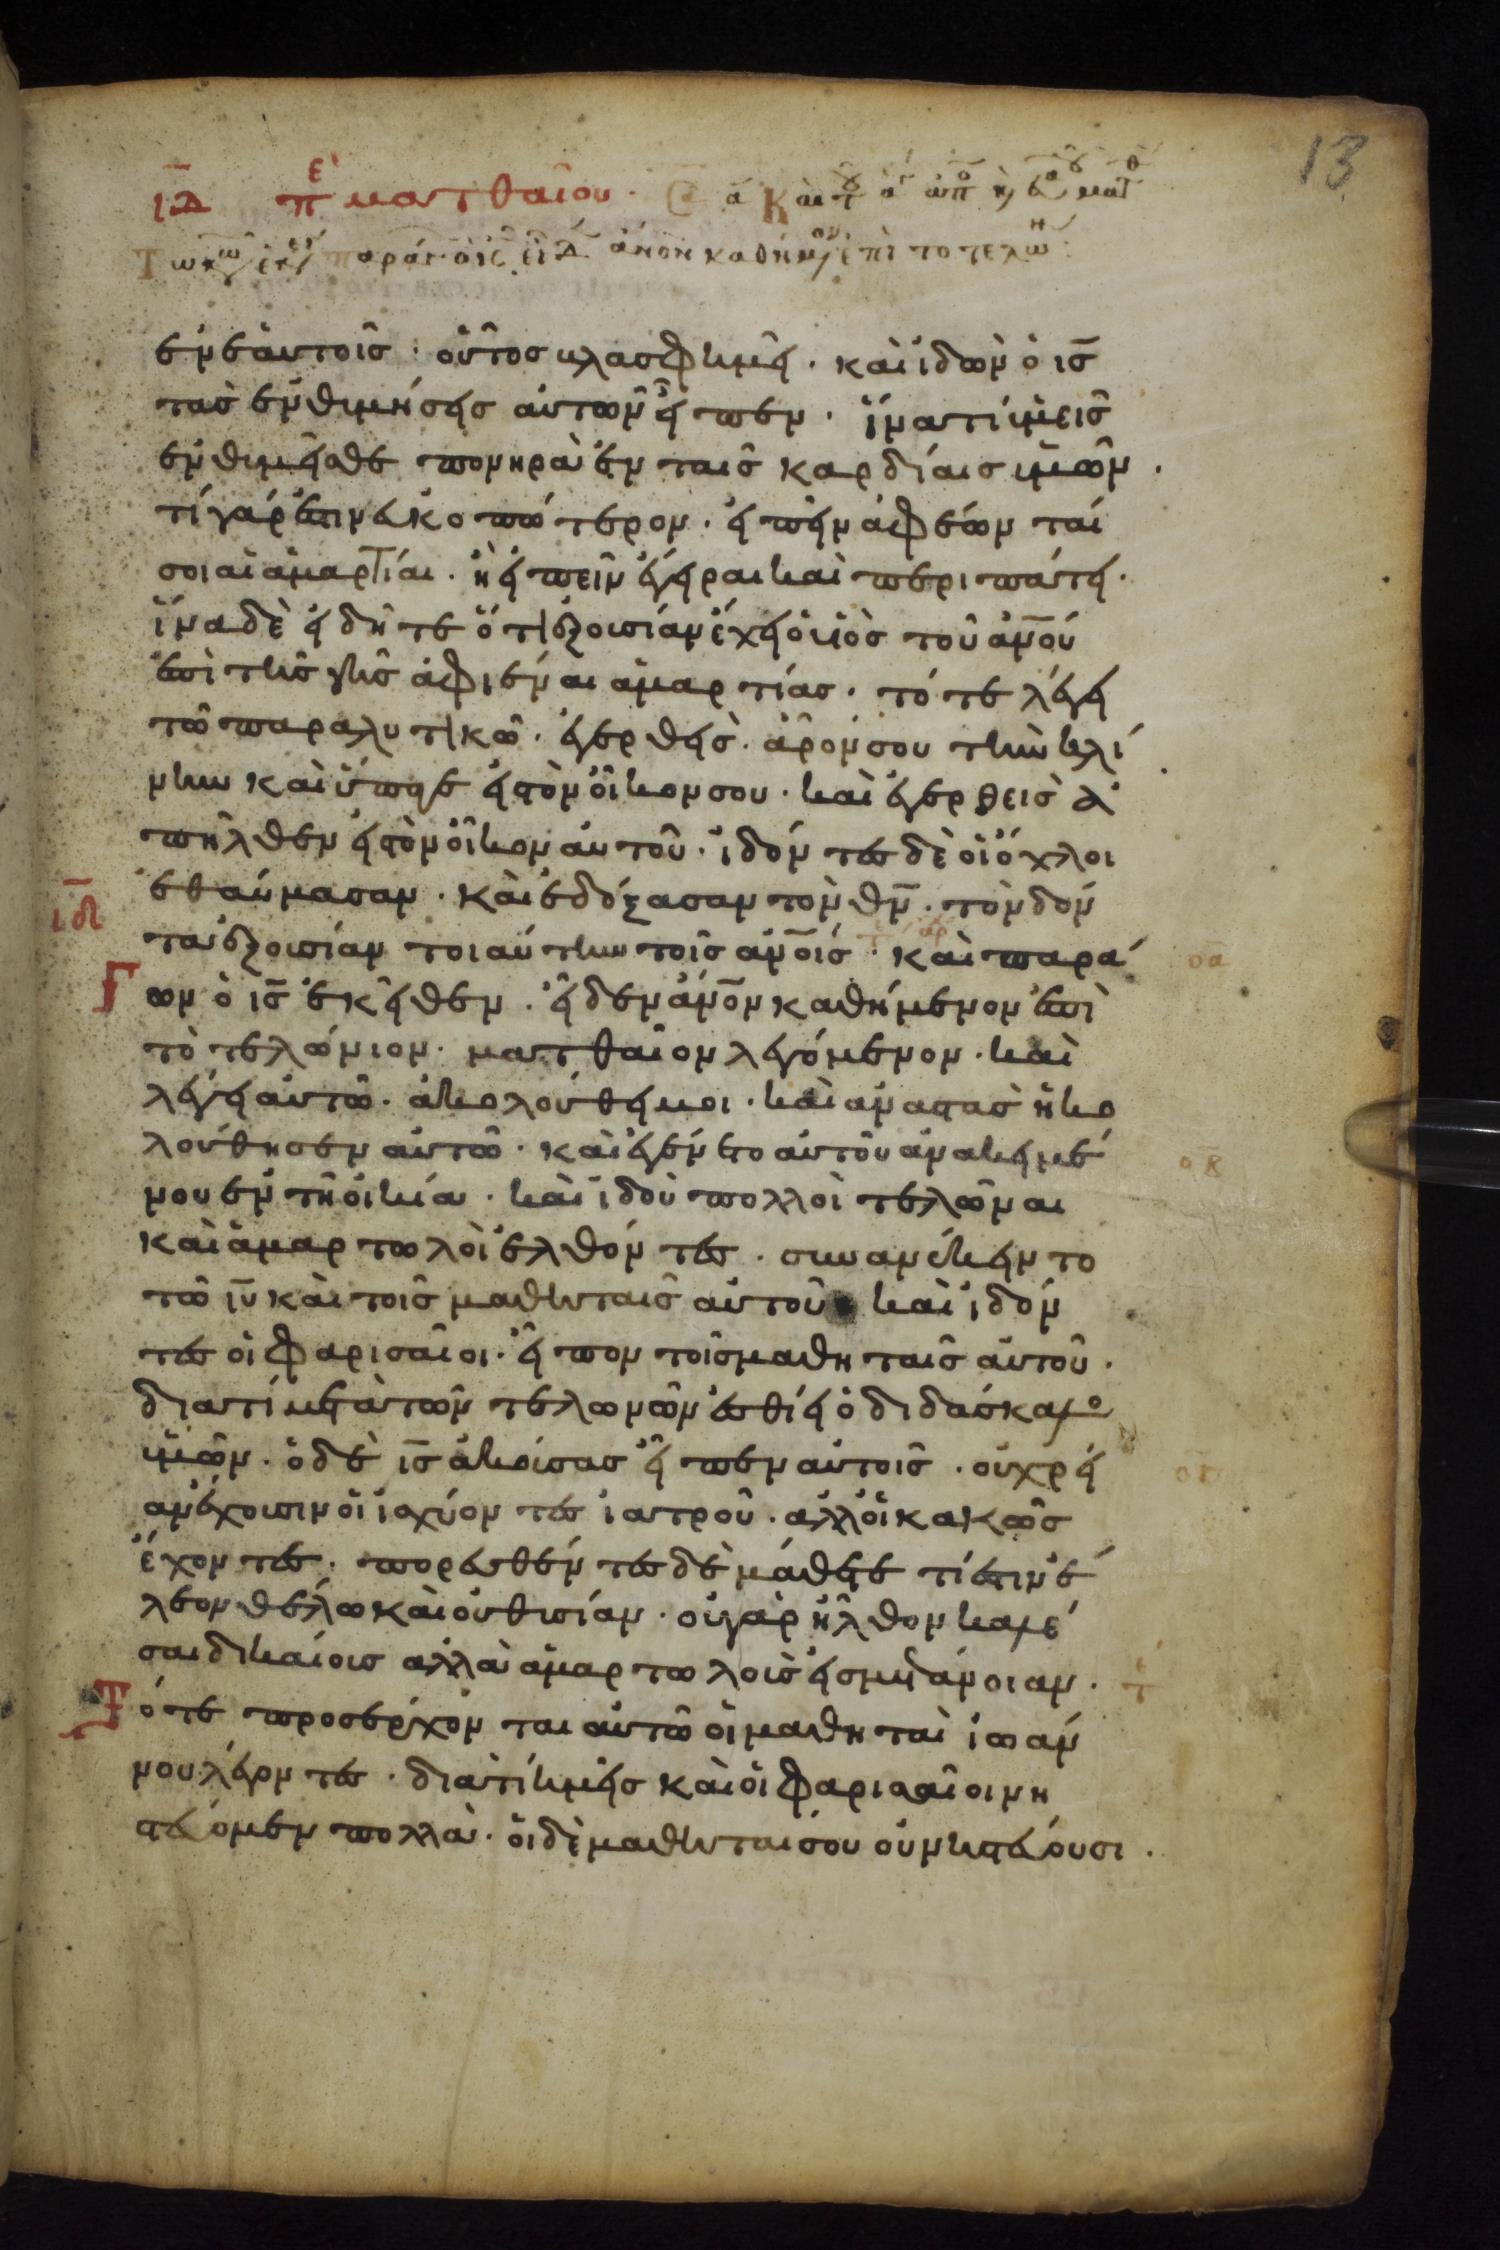 13
ιδ πε ματθαίου
ἐν ἑαυτοῖς · οὗτος βλασφημεῖ · καὶ ἰδὼν ὁ ις
τὰς ἐνθιμήσεις αὐτῶν εἶπεν · ἵνα τί ὑμεῖς
ἐνθιμεῖσθε πονηρὰ ἐν ταῖς καρδίαις ὑμῶν ·
τί γάρ ἐστιν εὐκοπώτερον · εἰπεῖν ἀφέωνταί
σοι αἱ ἁμαρτίαι · ἢ εἰπεῖν ἔγειραι καὶ περιπάτει ·
ἵνα δὲ εἰδῆτε ὅτι ἐξουσίαν ἔχει ὁ υἱὸς τοῦ ανου
ἐπὶ τῆς γῆς ἀφιέναι ἁμαρτίας · τότε λέγει
τῶ παραλυτικῶ · ἐγερθεὶς · ἆρόν σου τὴν κλί
νην καὶ ὕπαγε εἰς τὸν οἶκον σου · καὶ ἐγερθεὶς ἀ
πῆλθεν εἰς τὸν οἶκον αὐτοῦ · ἰδόντες δὲ οἱ ὄχλοι
ἐθαύμασαν · καὶ ἐδόξασαν τὸν θν · τὸν δόν
τα ἐξουσίαν τοιαύτην τοῖς ανοις · καὶ παρά
ιδ
Γων ὁ ις ἐκεῖθεν · εἶδεν ανον καθήμενον ἐπὶ
οα
τὸ τελώνιον · ματθαῖον λεγόμενον · καὶ
λέγει αὐτῶ · ἀκολούθει μοι · καὶ ἀναστὰς ἠκο
λούθησεν αὐτῶ · καὶ ἐγένετο αὐτοῦ ἀνακειμέ
οβ
νου ἐν τῆ οἰκία · καὶ ἰδοὺ πολλοὶ τελῶναι
καὶ ἁμαρτωλοὶ ἐλθόντες · συνανέκειντο
τῶ ιυ καὶ τοῖς μαθηταῖς αὐτοῦ · καὶ ἰδόν
τες οἱ φαρισαῖοι · εἶπον τοῖς μαθηταῖς αὐτοῦ ·
διατί μετὰ τῶν τελωνῶν ἐσθίει ὁ διδάσκαλο
ὑμῶν · ὁ δὲ ις ἀκούσας εἶπεν αὐτοῖς · οὐ χρεί
ογ
αν ἔχουσιν οἱ ἰσχύοντες ἰατροῦ · ἀλλ οἱ κακῶς
ἔχοντες · πορευθέντες δὲ μάθετε τί ἐστιν ἔ
λεον θέλω καὶ οὐ θυσίαν · οὐ γὰρ ἦλθον καλέ
σαι δικαίους ἀλλὰ ἁμαρτωλοὺς εἰς μετάνοιαν ·
Τότε προσέρχονται αὐτῶ οἱ μαθηταὶ ἰωάν
νου λέγοντες · διατί ἡμεῖς καὶ οἱ φαρισαῖοι νη
στεύομεν πολλὰ · οἱ δὲ μαθηταί σου οὐ νηστεύουσι ·